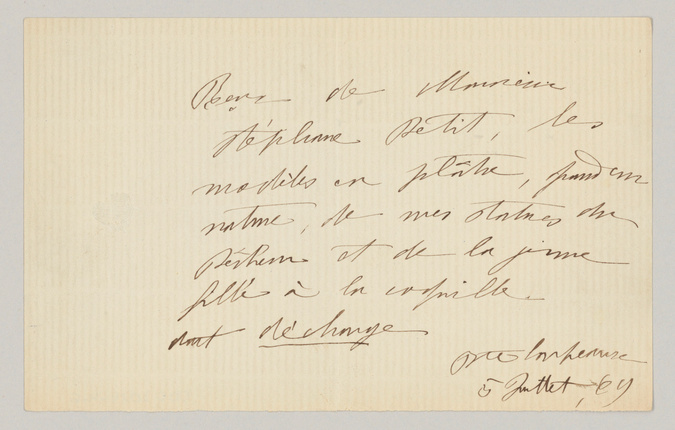 Reçu de Monsieur
Stéphane Petit, les
modèles en plâtre, grandeur
nature, de mes statues du
Pêcheur et de la jeune
fille à la coquille.
dont décharge
Bte Carpeaux
5 Juillet, 69